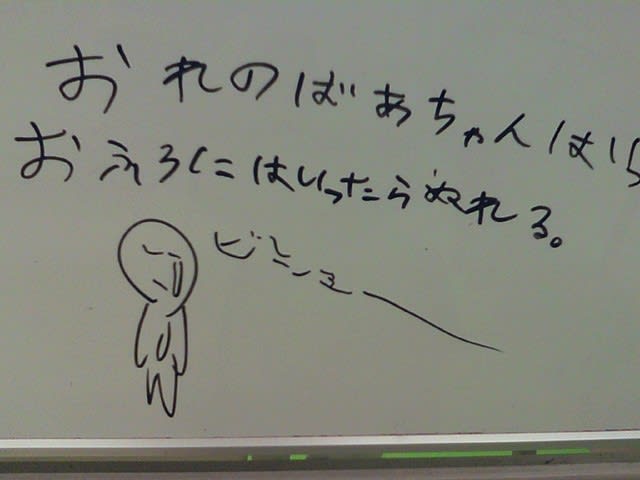 おれのばあちゃんは
おふろにはいったらぬれる。
ビニュー